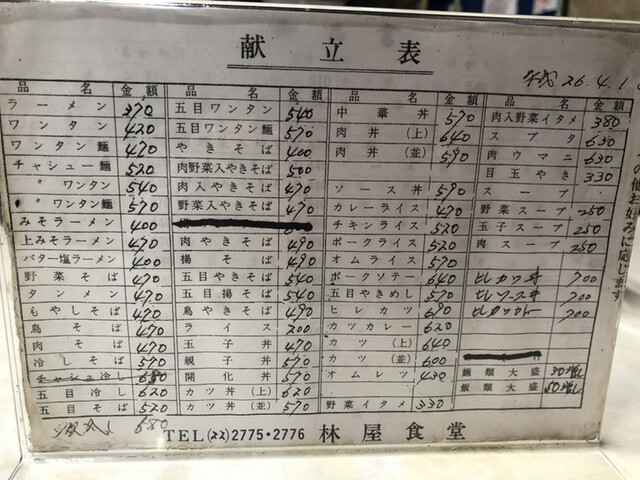 献立表
平成 26.4.1
品名 金額 品名 金額 品名 金額
ラーメン 370
ワンタン 420
ワンタン麺 470
チャシュー麺 520
〃 ワンタン 540
〃 ワンタン麺 570
みそラーメン 400
上みそラーメン 470
バター塩ラーメン 400
野菜そば 470
タンメン 470
もやしそば 470
鳥そば 470
肉そば 470
冷しそば 570
チャシュウ冷し 680
五目冷し 620
五目そば 520
680
五目ワンタン 540
五目ワンタン麺 570
やきそば 400
肉野菜入やきそば 500
肉入やきそば 470
野菜入やきそば 470
肉やきそば 490
揚そば 490
五目やきそば 540
五目揚そば 540
鳥やきそば 490
ライス 200
玉子丼 470
親子丼 570
開化丼 570
カツ丼(上) 620
カツ丼(並) 570
中華丼 570
肉丼(上) 640
肉丼(並) 590
ソース丼 590
カレーライス 470
チキンライス 520
ポークライス 520
オムライス 570
ポークソテー 640
五目やきめし 570
ヒレカツ 690
カツカレー 620
カツ(上) 640
カツ(並) 600
オムレツ 430
野菜イタメ 330
肉入野菜イタメ 380
スブタ 630
肉ウマニ 630
目玉やき 330
スープ
野菜スープ 250
玉子スープ 250
肉スープ 250
ヒレカツ丼 700
ヒレソース丼 700
ヒレカツカレー 700
麺類大盛 30増し
飯類大盛 50増し
の他お好みに応じます
TEL(22)2775・2776 林屋食堂